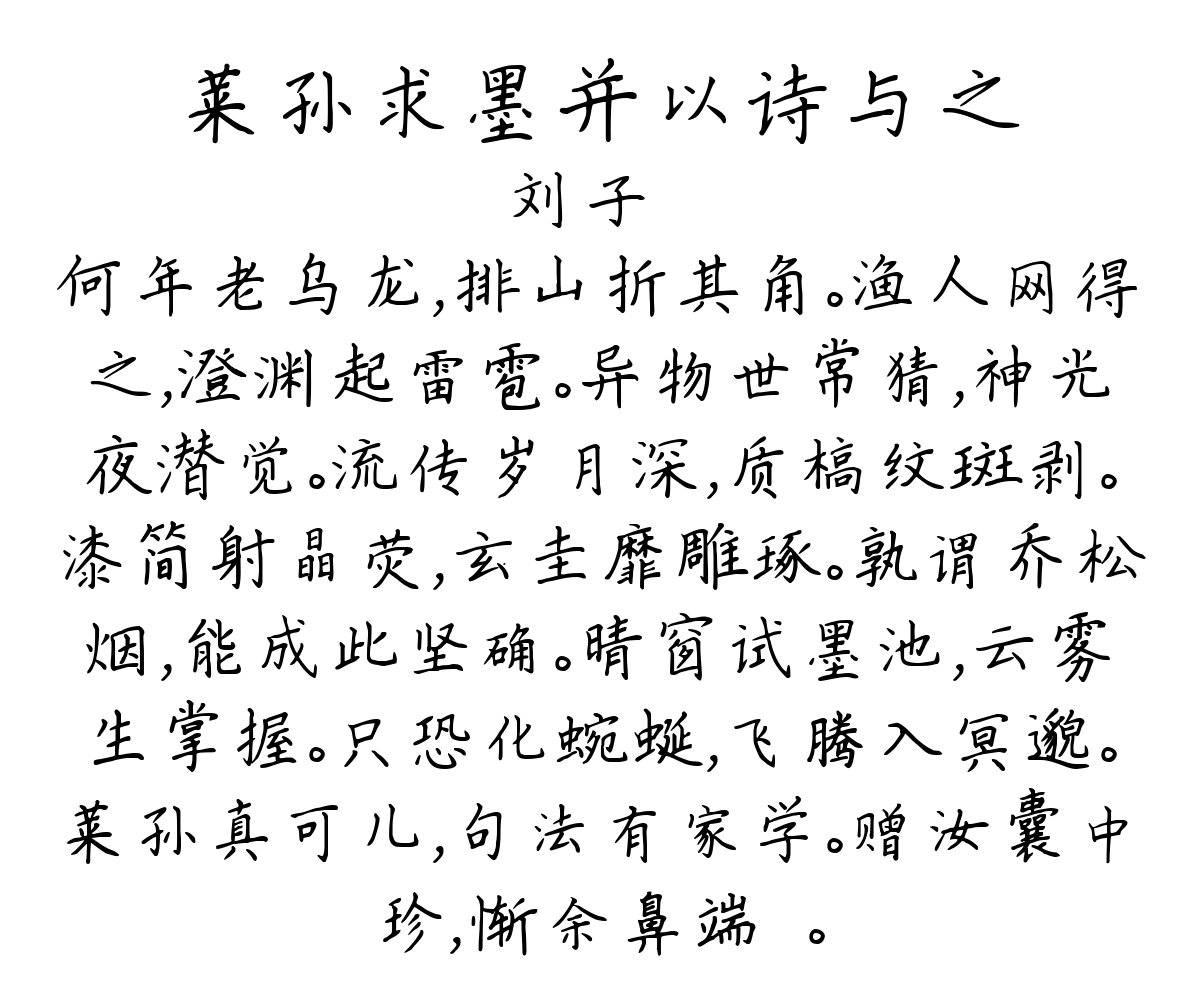 莱孙求墨并以诗与之
刘子
何年老乌龙,排山折其角。渔人网得
之,澄渊起雷雹。异物世常猜,神光
夜潜觉。流传岁月深,质槁纹斑剥。
漆简射晶荧,玄圭靡雕琢。孰谓乔松
烟,能成此坚确。晴窗试墨池,云雾
生掌握。只恐化蜿蜒,飞腾入冥邈。
莱孙真可儿,句法有家学。赠汝囊中
珍,惭余鼻端 。